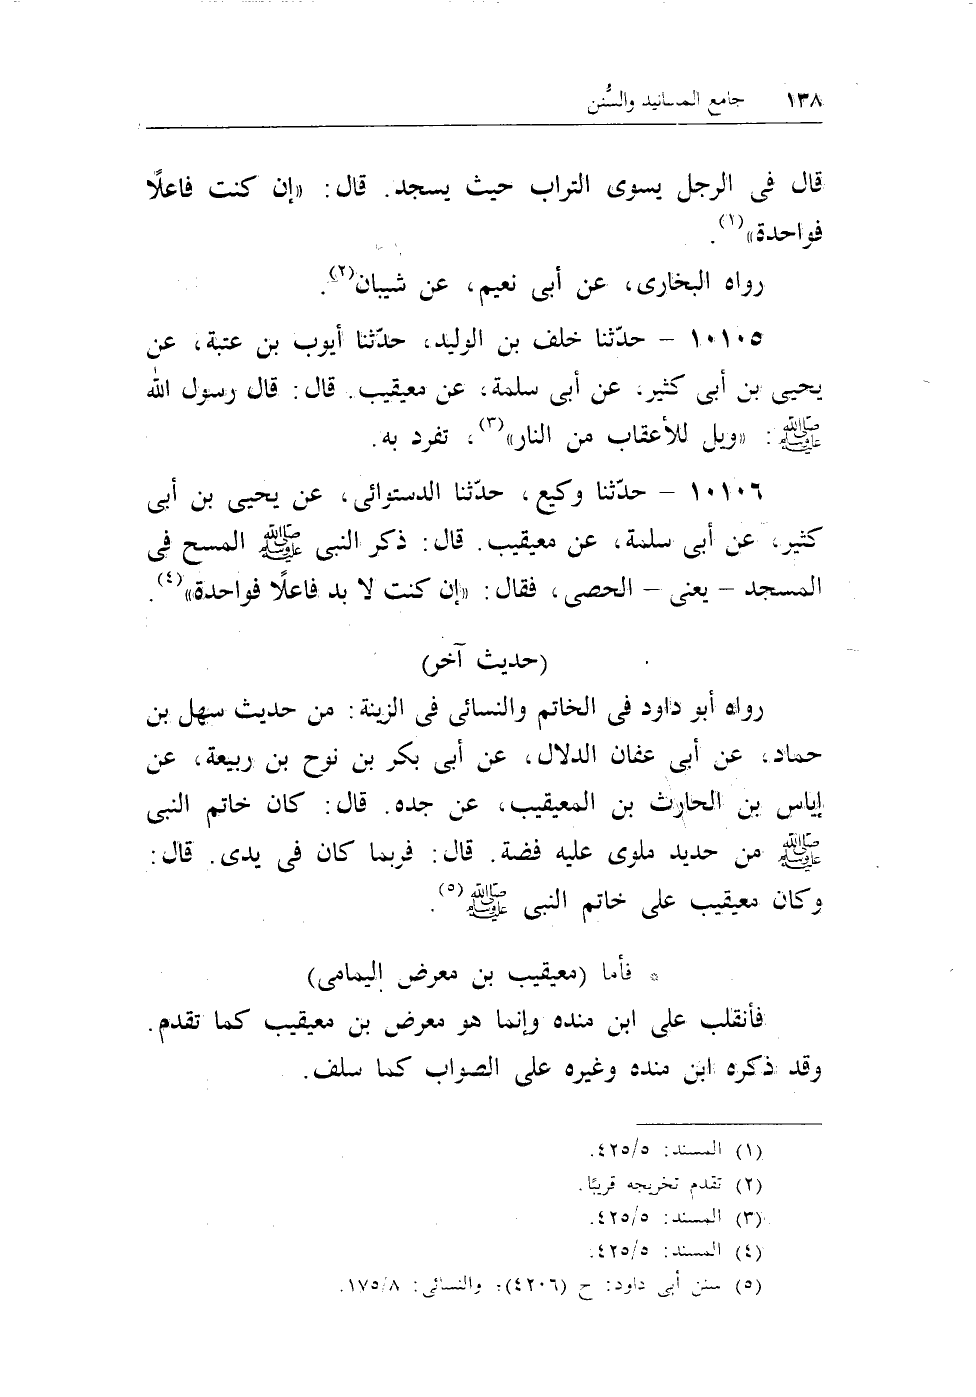 ١٣٨ جامع المسانيد والسُّنن
قال فى الرجل يسوى التراب حيث يسجد. قال: «إن كنت فاعلًا
فواحدة»(١).
رواه البخارى، عن أبى نعيم، عن شيبان(٢).
١٠١٠٥ - حدّثنا خلف بن الوليد، حدّثنا أيوب بن عتبة، عن
يحيى بن أبى كثير، عن أبى سلمة، عن معيقيب. قال: قال رسول الله
ﷺ: «ويل للأعقاب من النار»(٣)، تفرد به.
١٠١٠٦ - حدّثنا وكيع، حدّثنا الدستوائى، عن يحيى بن أبى
كثير، عن أبى سلمة، عن معيقيب. قال: ذكر النبى ﷺ المسح فى
المسجد - يعنى - الحصى، فقال: «إن كنت لا بد فاعلًا فواحدة»(٤).
(حديث آخر)
رواه أبو داود فى الخاتم والنسائى فى الزينة: من حديث سهل بن
حماد، عن أبى عفان الدلال، عن أبى بكر بن نوح بن ربيعة، عن
إياس بن الحارث بن المعيقيب، عن جده. قال: كان خاتم النبى
ﷺ من حديد ملوى عليه فضة. قال: فربما كان فى يدى. قال:
وكان معيقيب على خاتم النبى ﷺ(٥).
* فأما (معيقيب بن معرض اليمامى)
فأنقلب على ابن منده وإنما هو معرض بن معيقيب كما تقدم.
وقد ذكره ابن منده وغيره على الصواب كما سلف.
(١) المسند: ٤٢٥/٥.
(٢) تقدم تخريجه قريبًا.
(٣) المسند: ٤٢٥/٥.
(٤) المسند: ٤٢٥/٥.
(٥) سنن أبى داود: ح (٤٢٠٦)؛ والنسائى: ١٧٥/٨.